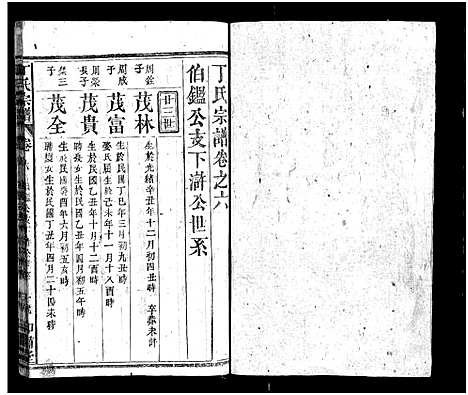 丁氏宗譜卷之六
伯鑑公支下滸公世系
廿二世
周鉉子
茂林
生於光緒辛丑年十二月初四丑時
卒葬未詳
周成子
茂富
生於民國丁巳年三月初九丑時
娶氏
生於己未年十一月十八酉時
周榮長子
茂貴
生於民國乙丑年十月十二酉時
生於民國乙丑年四月初五辰時
榮三子
茂全
生於民國癸酉年六月初五亥時
生於民國丁丑年四月二十四未時
丁氏宗譜